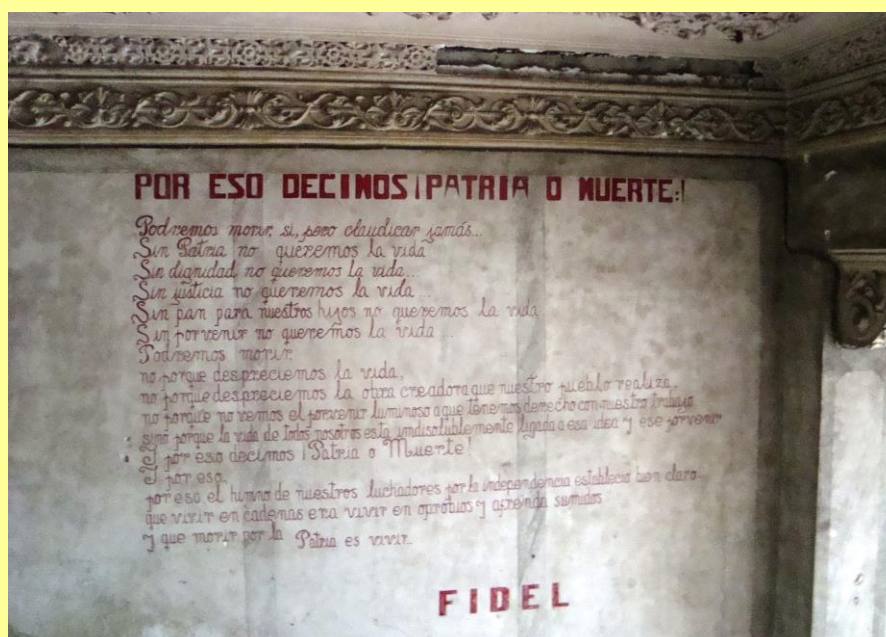 POR ESO DECIMOS ¡PATRIA O MUERTE:!
Podremos morir, si, pero claudicar jamás...
Sin Patria no queremos la vida
Sin dignidad, no queremos la vida...
Sin justicia no queremos la vida...
Sin pan para nuestros hijos no queremos la vida
Sin porvenir no queremos la vida...
Podremos morir.
no porque despreciemos la vida,
no porque despreciemos la obra creadora que nuestro pueblo realiza,
no porque no vemos el porvenir luminoso a que tenemos derecho con nuestro trabajo
sino porque la vida de todos nosotros esta indisolublemente ligada a esa idea y ese porvenir
Y por eso decimos ¡Patria o Muerte!
Y por eso,
por eso el himno de nuestros luchadores por la independencia establecio bien claro.
que vivir en cadenas era vivir en oprobios y afrenda sumidos
y que morir por la Patria es vivir.
FIDEL